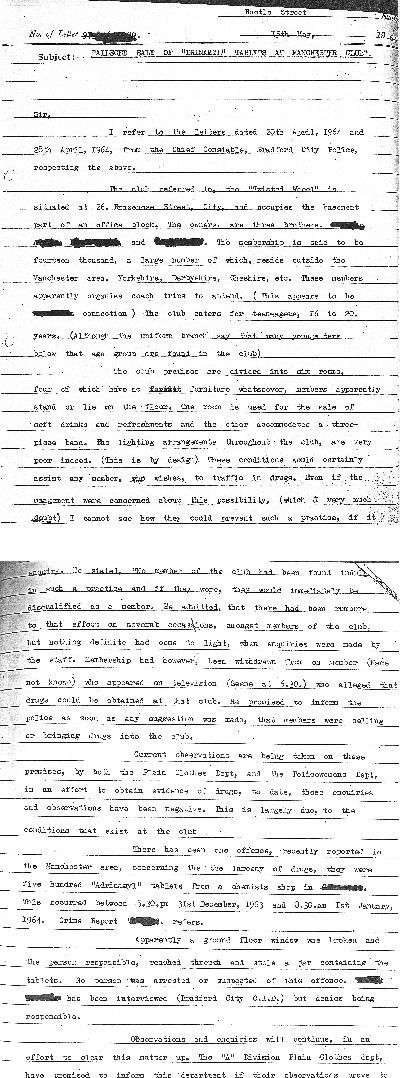 Bootle Street
No. of Letter
15th May,
Subject:- "ALLEGED SALE OF "DRINAMYL" TABLETS AT MANCHESTER CLUB".
Sir,
I refer to the letters dated 20th April, 1964 and
28th April, 1964, from the Chief Constable, Bradford City Police,
respecting the above.
The club referred to, the "Twisted Wheel" is
situated at 26. Brazenose Street, City, and occupies the basement
part of an office block. The owners are three brothers.
and The membership is said to be
fourteen thousand, a large number of which, reside outside the
Manchester area. Yorkshire, Derbyshire, Cheshire, etc. These members
apparently organise coach trips to attend. (This appears to be
connection) The club caters for teenagers, 16 to 20.
years. (Although the uniform branch say that many youngsters
below that age group are found in the club)
The club premises are divided into six rooms,
four of which have no furniture whatsoever, members apparently
stand or lie on the floor, One room is used for the sale of
soft drinks and refreshments and the other accommodates a three-
piece band. The lighting arrangements throughout the club, are very
poor indeed. (This is by design) These conditions would certainly
assist any member, who wishes, to traffic in drugs. Even if the
management were concerned about this possibility, (which I very much
doubt) I cannot see how they could prevent such a practice, if it
enquiry. He stated, "No member of the club had been found
in such a practice and if they were, they would immediately be
disqualified as a member. He admitted, that there had been rumours
to that effect on several occasions, amongst members of the club.
but nothing definite had come to light, when enquiries were made by
the staff. Membership had however, been withdrawn from on member (Name
not known) who appeared on television (Scene at 6.30.) who alleged that
drugs could be obtained at that club. He promised to inform the
police as soon as any suggestion was made, that members were selling
or bringing drugs into the club.
Current observations are being taken on these
premises, by both the Plain Clothes Dept, and the Policewomens Dept,
in an effort to obtain evidence of drugs, to date, these enquiries
and observations have been negative. This is largely due, to the
conditions that exist at the club
There has been one offence, recently reported in
the Manchester area, concerning the the larceny of drugs, they were
five hundred "Adrinmyl" tablets from a chemists shop in
This occurred between 5.30.pm 31st December, 1963 and 8.30.am 1st January,
1964. Crime Report refers.
Apparently a ground floor window was broken and
the person responsible, reached through and stole a jar containing the
tablets. No person was arrested or suspected of this offence.
has been interviewed (Bradford City C.I.D.) but denies being
responsible.
Observations and enquiries will continue, in an
effort to clear this matter up. The "A" Division Plain Clothes dept,
have promised to inform this department if their observations prove to